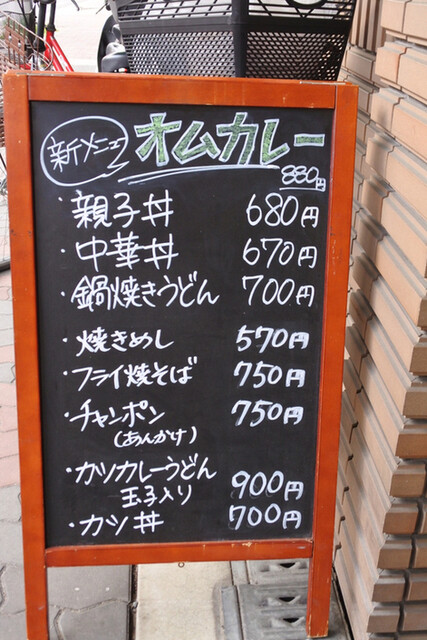 新メニュー オムカレー
880円
・親子丼 680円
・中華丼 670円
・鍋焼きうどん 700円
・焼きめし 570円
・フライ焼そば 750円
・チャンポン 750円
(あんかけ)
・カツカレーうどん
玉子入り 900円
・カツ丼 700円